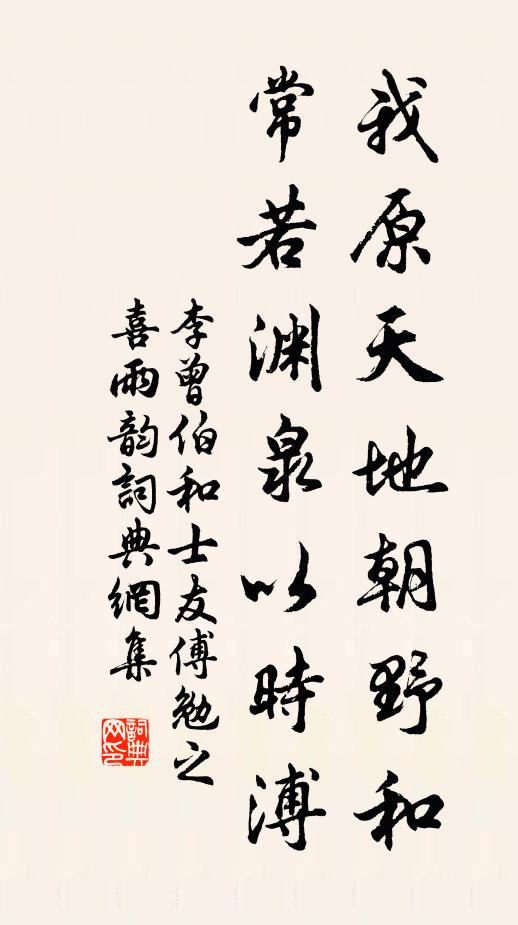 我原天地朝野和
常若渊泉以時溥
李曾伯和士友傅勉之
喜雨韵詞典網集
詞典網印